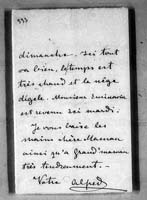 dimanche. Ici tout
va bien, le temps est
très chaud et la neige
dégèle. Monsieur
est revenu ici mardi.
Je vous baise les
mains chère Maman
ainsi qu'à Grand'maman
très tendrement. —
Votre Alfred